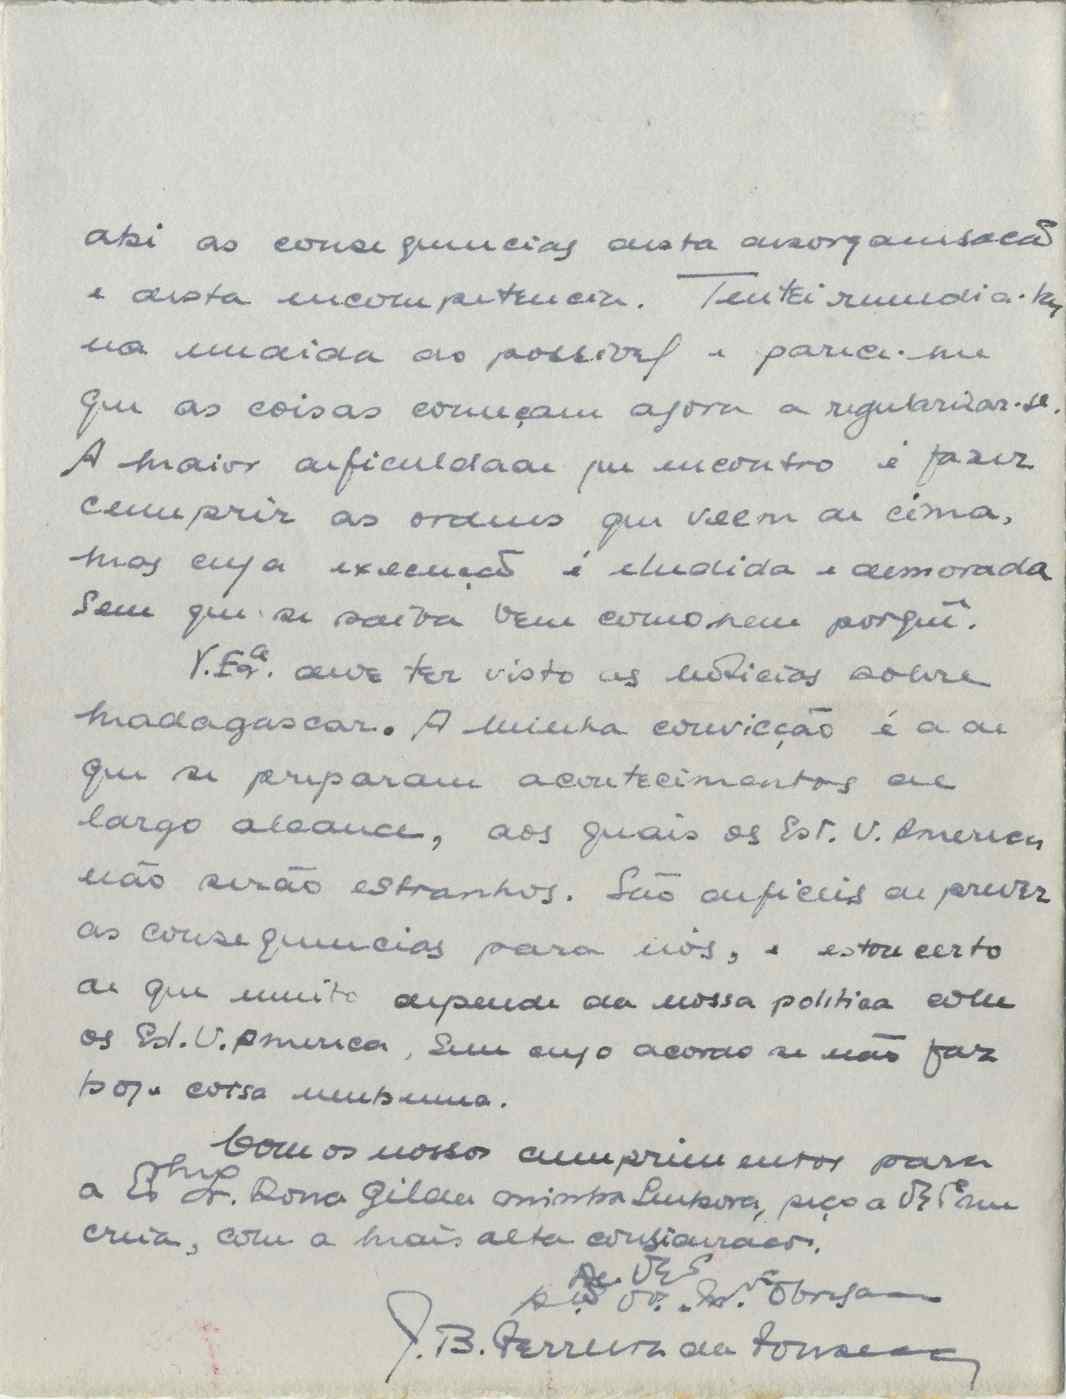 ahi as consequencias desta desorganisacão
e desta incompetencia. Tentei remedia-las
na medida do possivel e parece-me
que as coisas começam agora a regularizar-se.
A maior dificuldade que encontro é fazer
cumprir as ordens que veem de cima,
mas cuja execução é eludida e demorada
sem que se saiba bem como nem porquê.
V. Exª. deve ter visto as noticias sobre
Madagascar. A minha convicção é a de
que se preparam acontecimentos de
largo alcance, aos quais os Est. U. America
não serão estranhos. São dificeis de prever
as consequencias para nós, e estou certo
de que muito depende da nossa politica com
os Est. U. America, sem cujo acordo se não faz
hoje coisa nenhuma.
Com os nossos cumprimentos para
a Dona Gilda minha Senhora, peço a V. Exª me
creia, com a mais alta consideracão.
De V. E
Obrigado
J. B. Ferreira da Fonseca